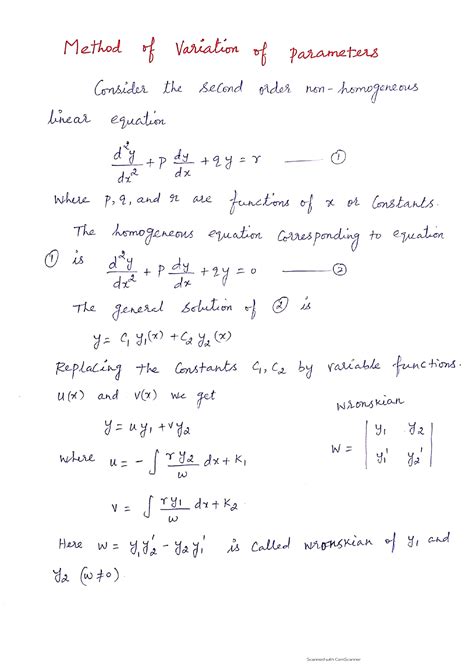 Method of Variation of parameters
Consider the second order non-homogeneous
linear equation
d²y/dx² + p dy/dx + qy = r —— ①
Where p, q, and r are functions of x or Constants.
The homogeneous equation Corresponding to equation
① is d²y/dx² + p dy/dx + qy = 0 —— ②
The general Solution of ② is
y = C₁ y₁(x) + C₂ y₂(x)
Replacing the Constants C₁, C₂ by variable functions.
u(x) and v(x) we get
y = uy₁ + vy₂
where u = - ∫ ry₂/w dx + K₁
v = ∫ ry₁/w dx + K₂
wronskian
W = | y₁ y₂ |
| y₁' y₂' |
Here w = y₁y₂' - y₂y₁' is called wronskian of y₁ and
y₂ (w ≠ 0)
Scanned with CamScanner